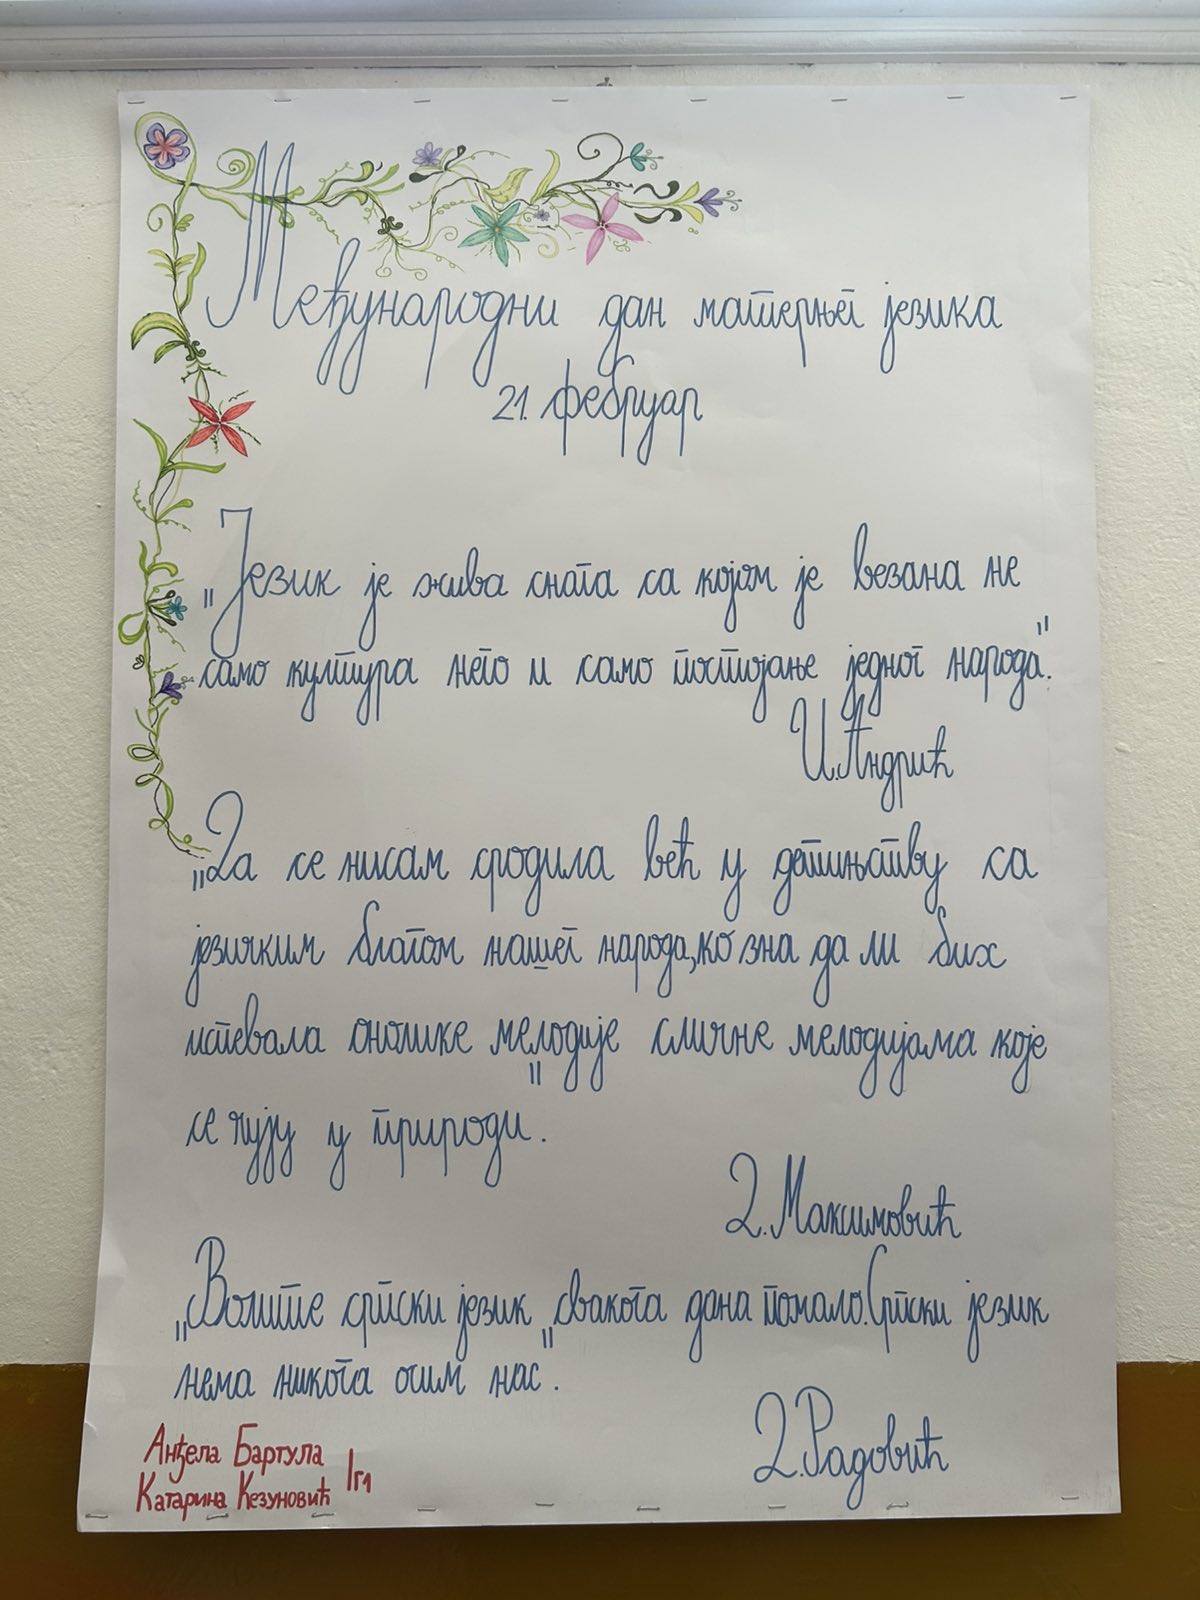 Међународни дан матерњег језика
21. фебруар
„Језик је жива снага са којом је везана не
само култура него и само постојање једног народа".
И. Андрић
„Да се нисам сродила већ у детињству са
језичким благом нашег народа, ко зна да ли бих
испевала онолике мелодије сличне мелодијама које
се чују у природи".
Д. Максимовић
„Волите српски језик свакога дана помало. Српски језик
нема никога осим нас".
Д. Радовић
Анђела Бартула
Катарина Кезуновић
Iг1